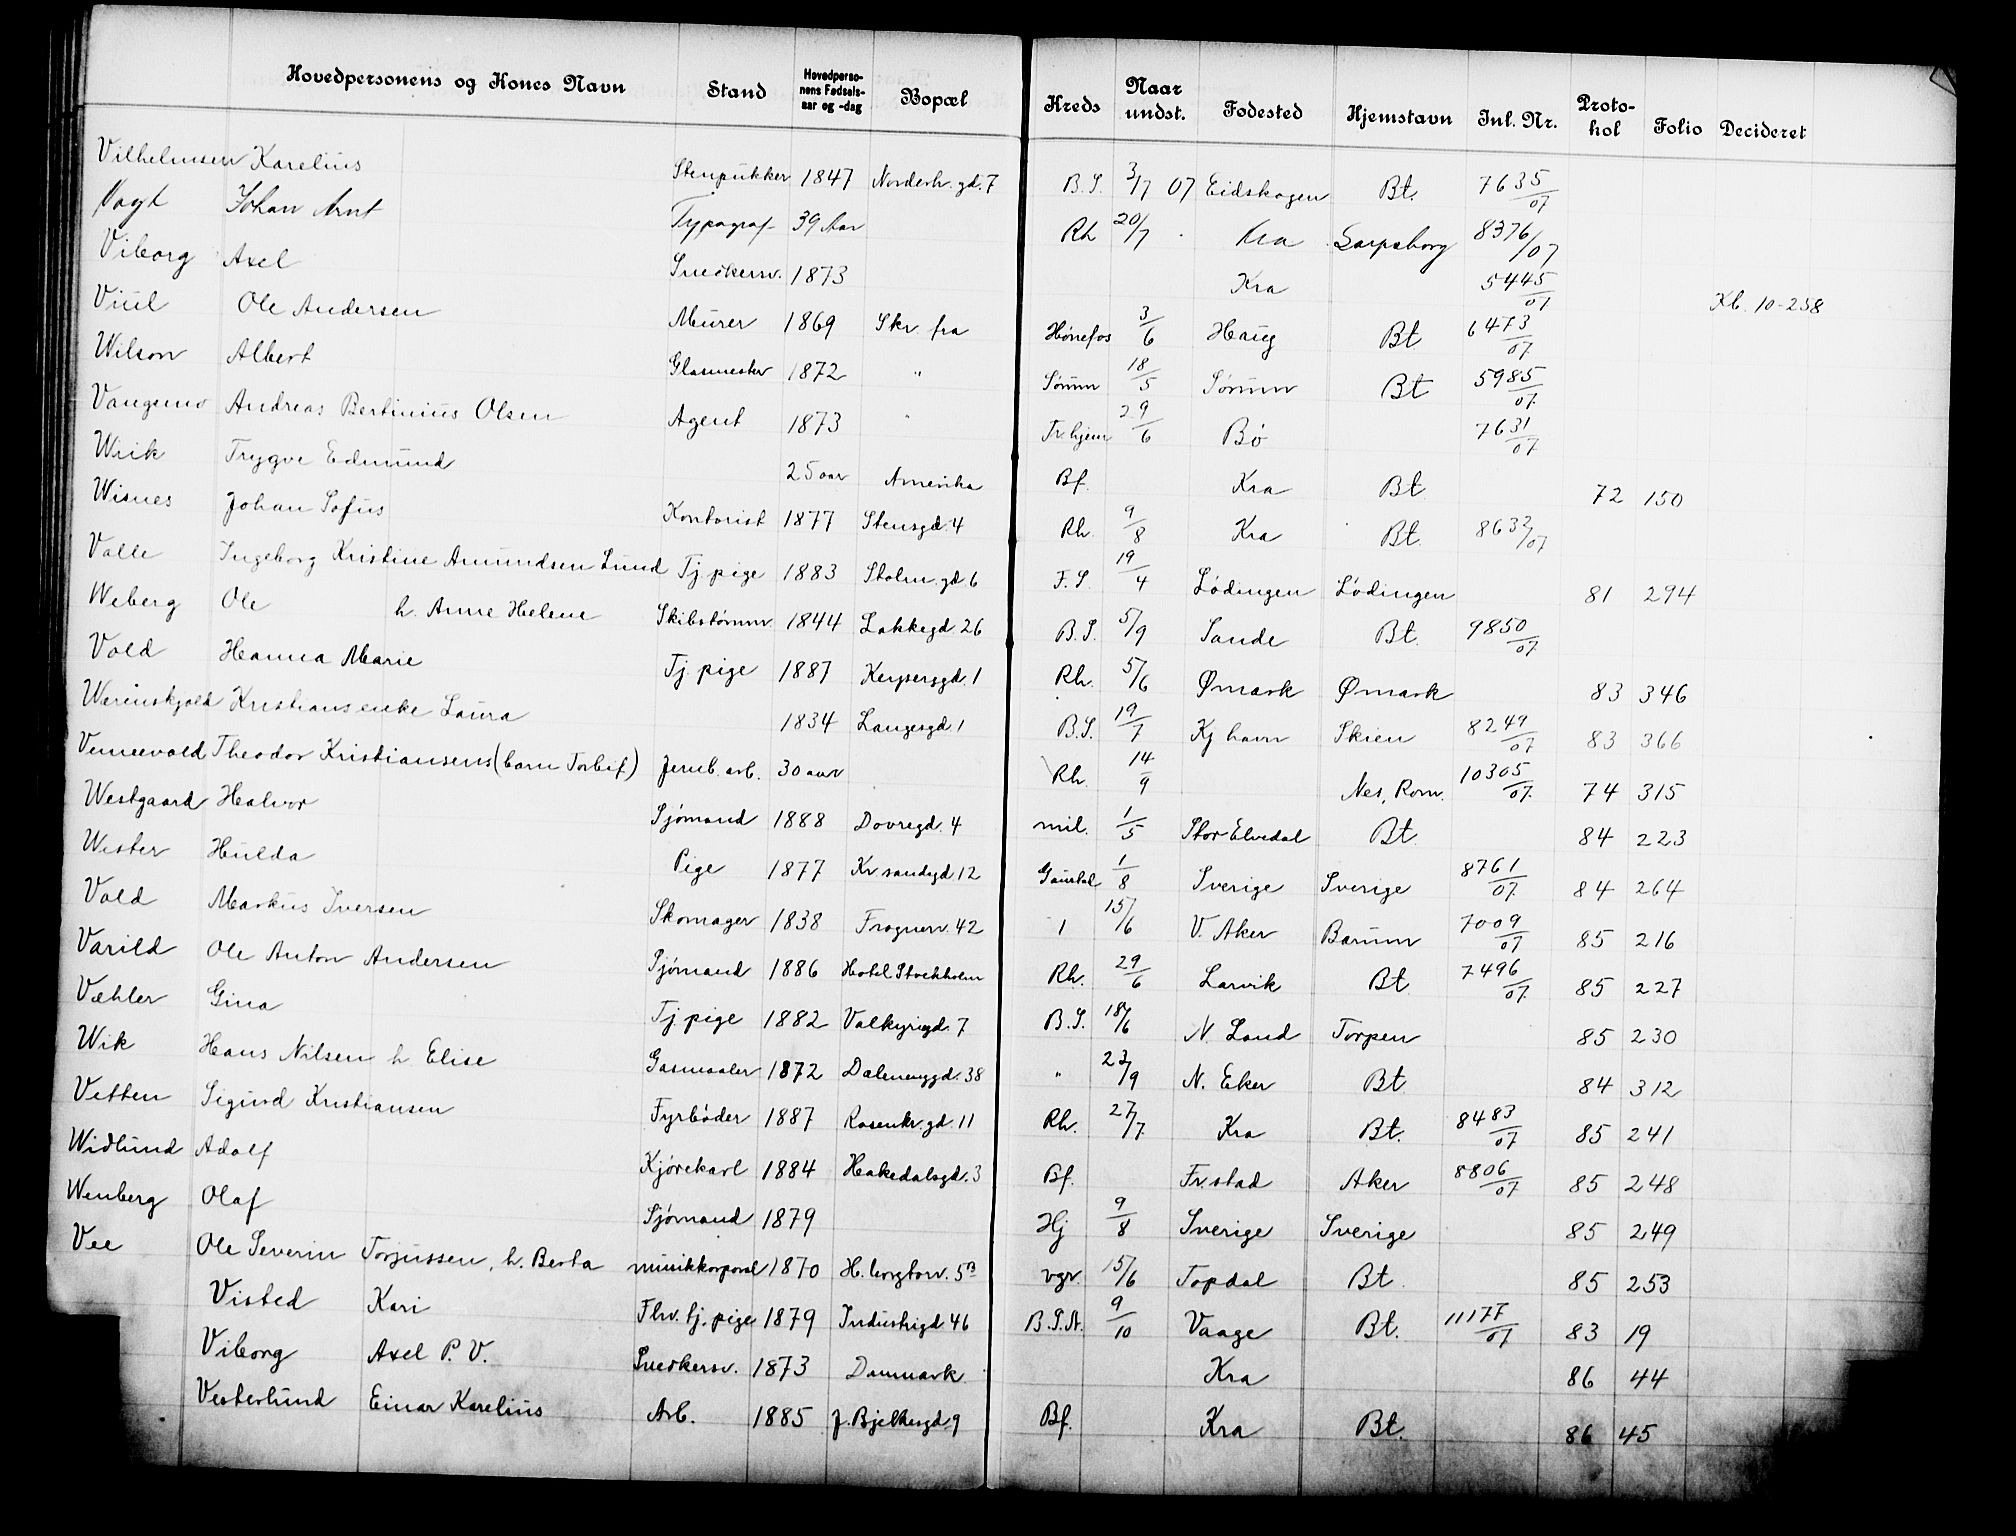 Hovedpersonens og Kones Navn Stand Hovedpersonens Fødselsaar og -dag Bopæl Kreds Naar undst. Fødested Hjemstavn Inl. Nr. Protokol Folio Decideret
Vilhelmsen Karelius Stenpukker 1847 Norderh. gd. 7 B.S. 3/7 07 Eidskogen Bt. 7635/07
Vogt Johan Arnt Typograf 39 Aar Rh 20/7 Kra Sarpsborg 8376/07
Viborg Axel Snedkersv. 1873 Kra 5445/07 Kb. 10-258
Viul Ole Andersen Murer 1869 Skr. fra Hønefos 3/6 Haug Bt 6473/07
Wilson Albert Glasmester 1872 " Sørum 18/5 Sørum Bt 5985/07
Vangemo Andreas Bertinius Olsen Agent 1873 " Tr.hjem 29/6 Bø 7631/07
Wiik Trygve Edmund 25 aar Amerika Bf. Kra Bt 72 150
Wisnes Johan Sofus Kontorist 1877 Stensgd. 4 Rh. 9/8 Kra Bt. 8632/07
Valle Ingeborg Kristine Amundsen Lund Tj. pige 1883 Stolm. gd 6 F.S. 19/4 Lødingen Lødingen 81 294
Weberg Ole h. Anne Helene Skibstømm. 1844 Lakkegd. 26 B.S. 5/9 Sande Bt. 9850/07
Vold Hanna Marie Tj. pige 1887 Keysersgd. 1 Rh. 5/6 Ømark Ømark 83 346
Werinskjold Kristians enke Laura 1834 Langesgd. 1 B.S. 19/7 Kj havn Skien 8249/07 83 366
Vennevold Theodor Kristiansens (barn Torleif) Jernb. arb. 30 aar Rh. 14/9 Nes, Rom. 10305/07. 74 315
Westgaard Halvor Sjømand 1888 Dovregd. 4 mil. 1/5 Stor Elvedal Bt. 84 223
Wister Hulda Pige 1877 Kr sandsgd 12 Gaustad 1/8 Sverige Sverige 8761/07. 84 264
Vold Markus Iversen Skomager 1838 Frognerv. 42 1 15/6 V. Aker Bærum 7009/07 85 216
Varild Ole Anton Andersen Sjømand 1886 Hotel Stockholm Rh. 29/6 Larvik Bt. 7496/07. 85 227
Væhler Gina Tj. pige 1882 Valkyriegd. 7 B.S. 18/6 N. Land Torpen 85 230
Wik Hans Nilsen h Elise Gasmaaler 1872 Dælenenggd. 38 " 23/9 N. Eker Bt. 84 312
Vetten Sigurd Kristiansen Fyrbøder 1887 Rosenkr. gd. 11 Rh. 27/7. Kra Bt. 8483/07 85 241
Widlund Adolf Kjørekarl 1884 Hakedalsgd. 3 Bf. Fr.stad Aker 8806/07 85 248
Wenberg Olaf Sjømand 1879 Hj 9/8 Sverige Sverige 85 249
Vee Ole Severin Torjussen, h. Berta musikkorporal 1870 H. borgtorv. 5B vgv. 15/6 Topdal Bt. 85 253
Visted Kari Fhv. tj. pige 1879 Industrigd 46 B.S.A. 9/10 Vaage Bt. 11177/07 83 19
Viborg Axel P. V. Snedkersv. 1873 Danmark Kra 86 44
Vesterlund Einar Karelius Arb. 1885 J. Bjelkesgd. 9 Bf. Kra Bt. 86 45